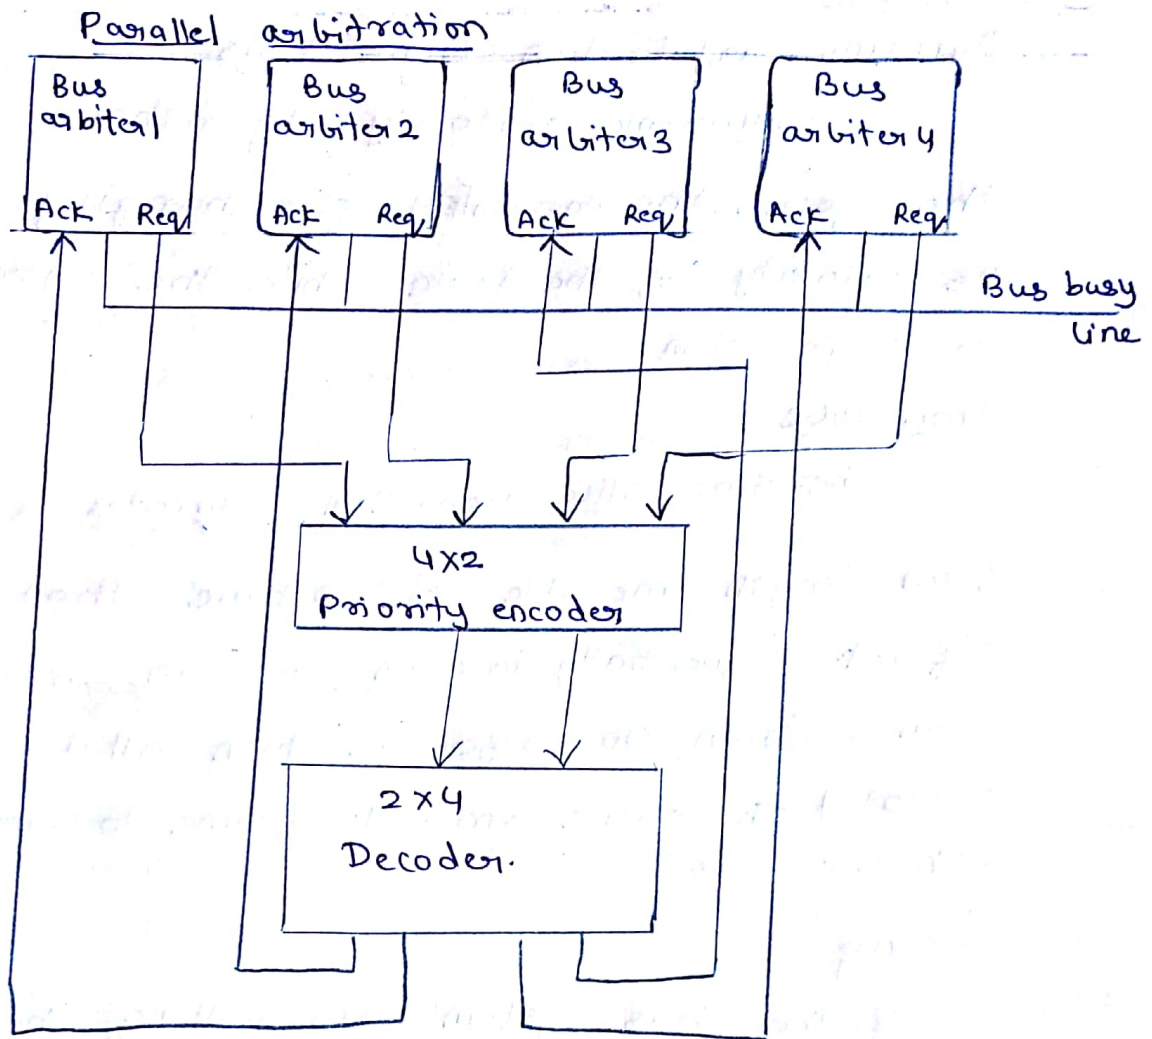 Parallel arbitration
Bus
arbiter1
Ack Req
Bus
arbiter 2
Ack Req
Bus
arbiter 3
Ack Req
Bus
arbiter 4
Ack Req
Bus busy
line
4X2
Priority encoder
2X4
Decoder.